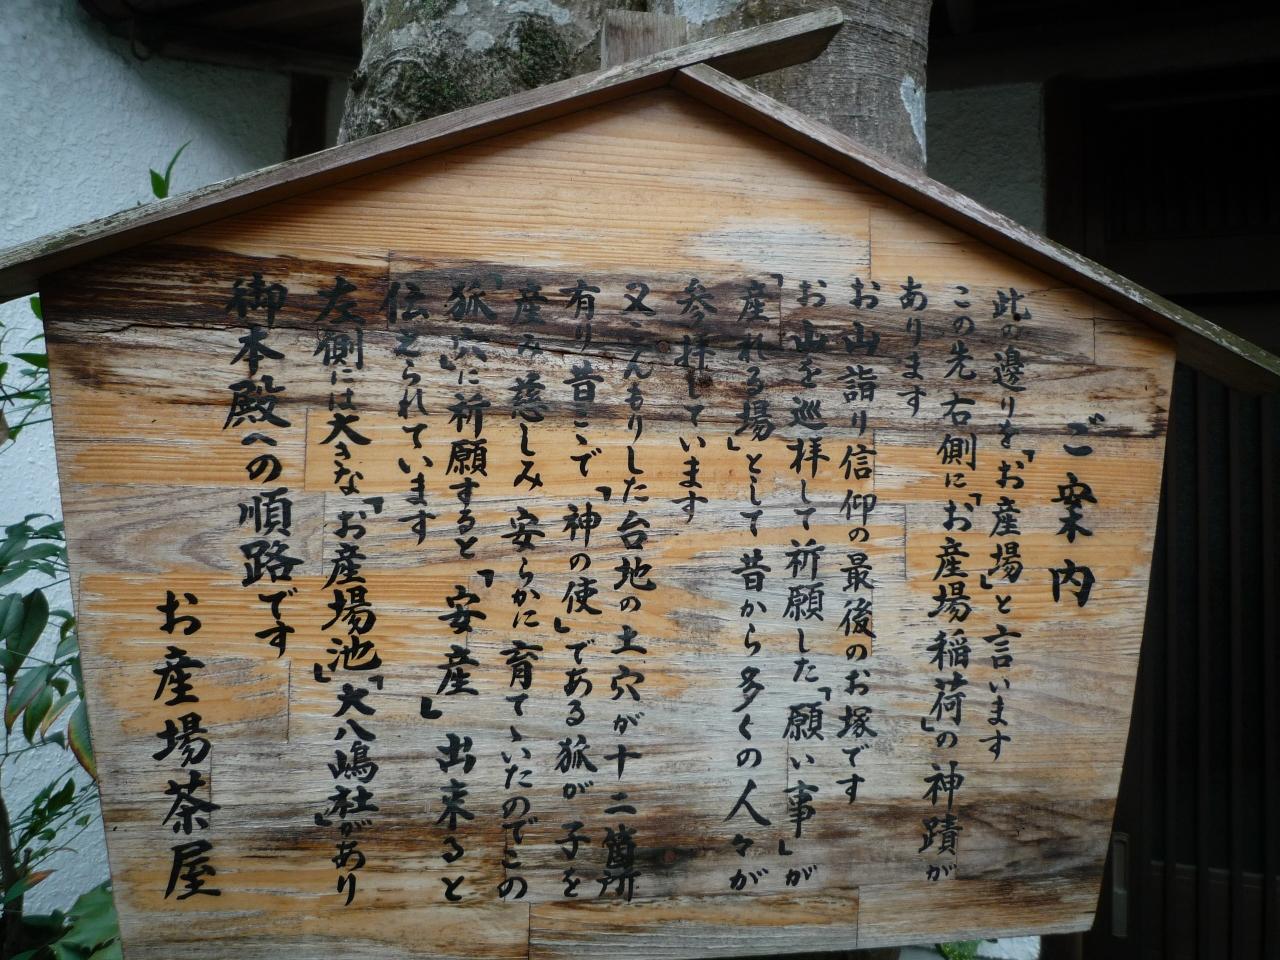 ご案内
此の邊りを「お産場」と言います
この先右側に「お産場稲荷」の神蹟が
あります
お山詣り信仰の最後のお塚です
お山を巡拝して祈願した「願い事」が
「産れる場」として昔から多くの人々が
参拝しています
又こんもりした台地の土穴が十二箇所
有り昔こゝで「神の使」である狐が子を
産み慈しみ安らかに育てゝいたのでこの
「狐穴」に祈願すると「安産」出来ると
伝えられています
左側には大きな「お産場池」「大八嶋社」があり
御本殿への順路です
お産場茶屋